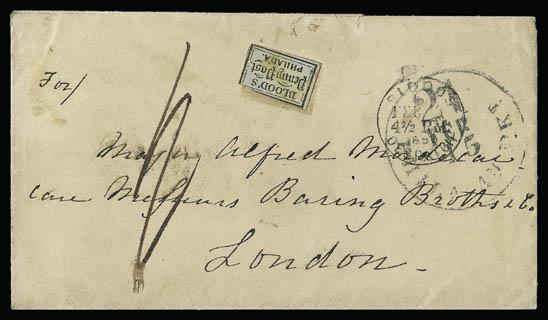 BLOOD'S
Penny Post
PHILADA.
For/
Major Alfred Mordecai
care Messieurs Baring Broths & Co.
London
4½ PM